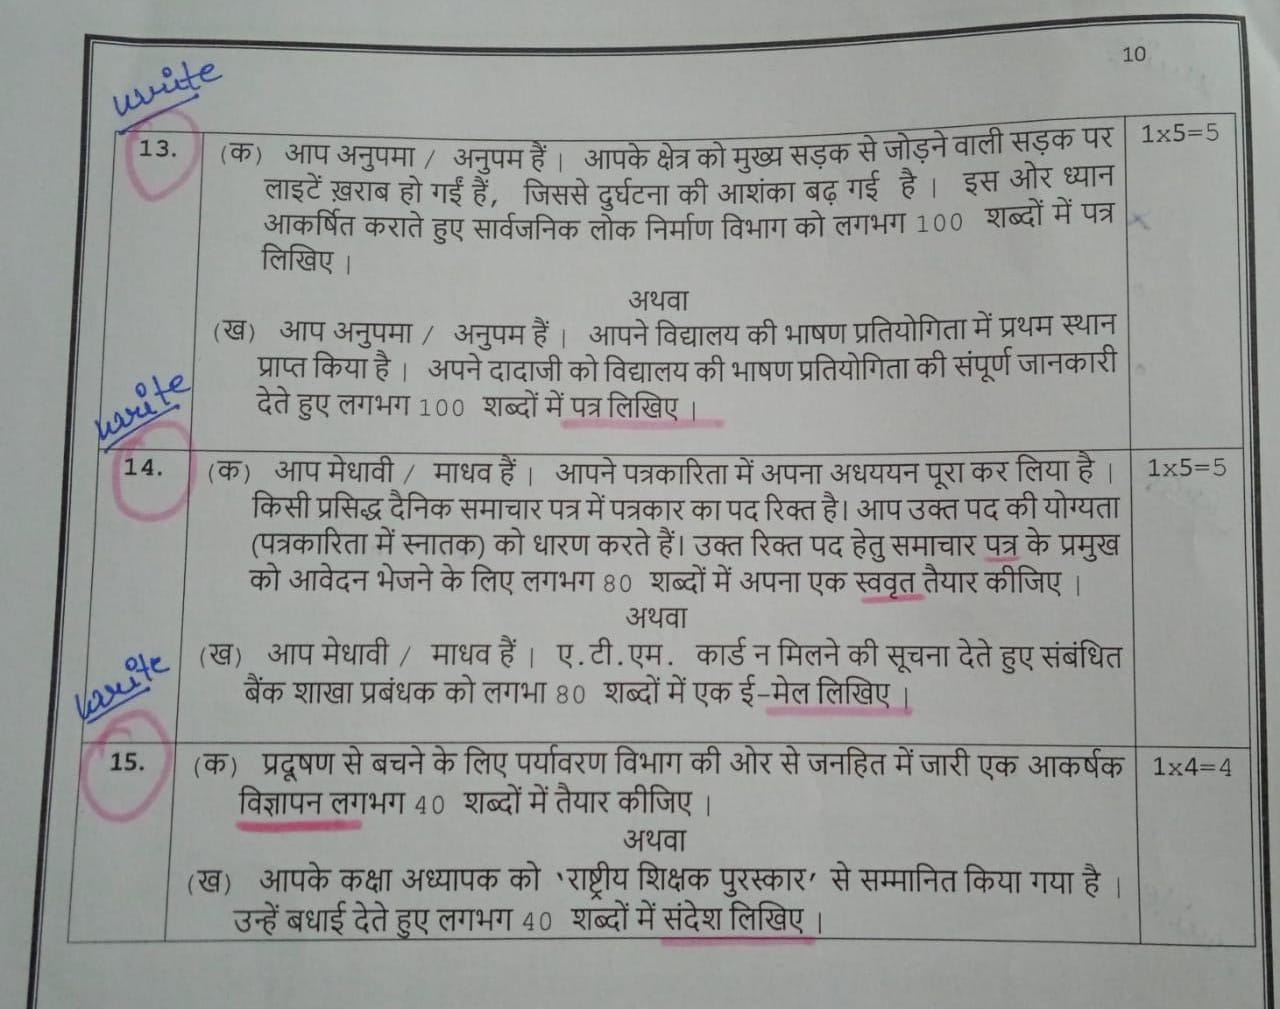 10
write
13. (क) आप अनुपमा / अनुपम हैं। आपके क्षेत्र को मुख्य सड़क से जोड़ने वाली सड़क पर 1x5=5
लाइटें ख़राब हो गईं हैं, जिससे दुर्घटना की आशंका बढ़ गई है। इस ओर ध्यान
आकर्षित कराते हुए सार्वजनिक लोक निर्माण विभाग को लगभग 100 शब्दों में पत्र
लिखिए।
अथवा
(ख) आप अनुपमा / अनुपम हैं। आपने विद्यालय की भाषण प्रतियोगिता में प्रथम स्थान
प्राप्त किया है। अपने दादाजी को विद्यालय की भाषण प्रतियोगिता की संपूर्ण जानकारी
देते हुए लगभग 100 शब्दों में पत्र लिखिए।
write
14. (क) आप मेधावी / माधव हैं। आपने पत्रकारिता में अपना अधययन पूरा कर लिया है। 1x5=5
किसी प्रसिद्ध दैनिक समाचार पत्र में पत्रकार का पद रिक्त है। आप उक्त पद की योग्यता
(पत्रकारिता में स्नातक) को धारण करते हैं। उक्त रिक्त पद हेतु समाचार पत्र के प्रमुख
को आवेदन भेजने के लिए लगभग 80 शब्दों में अपना एक स्ववृत तैयार कीजिए।
अथवा
(ख) आप मेधावी / माधव हैं। ए.टी.एम. कार्ड न मिलने की सूचना देते हुए संबंधित
बैंक शाखा प्रबंधक को लगभा 80 शब्दों में एक ई-मेल लिखिए।
write
15. (क) प्रदूषण से बचने के लिए पर्यावरण विभाग की ओर से जनहित में जारी एक आकर्षक 1x4=4
विज्ञापन लगभग 40 शब्दों में तैयार कीजिए।
अथवा
(ख) आपके कक्षा अध्यापक को 'राष्ट्रीय शिक्षक पुरस्कार' से सम्मानित किया गया है।
उन्हें बधाई देते हुए लगभग 40 शब्दों में संदेश लिखिए।